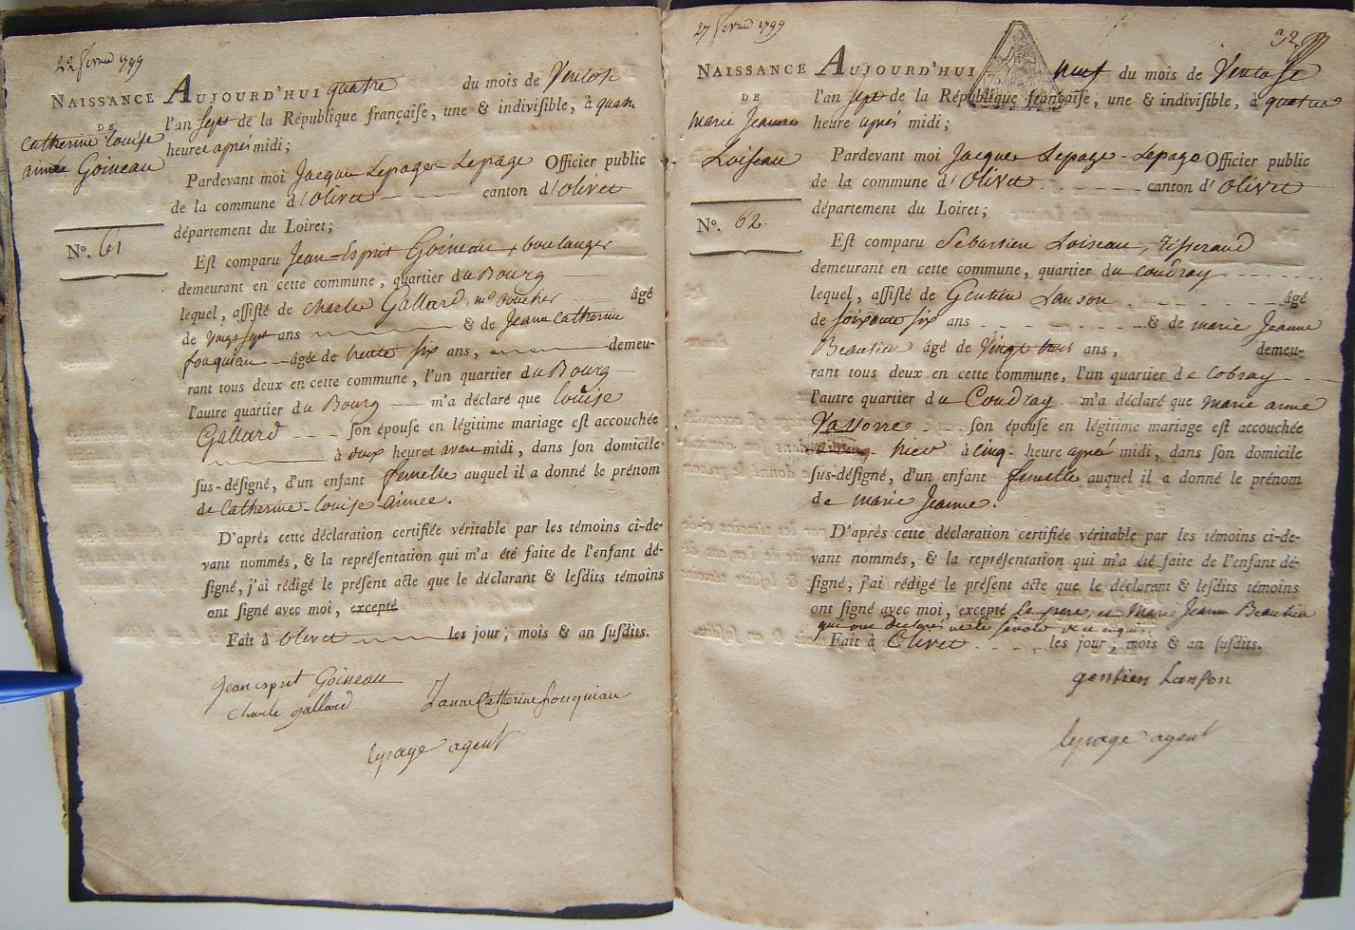 22 fevrier 1799
NAISSANCE
DE
Catherine Louise
aimée Goineau
N°. 61
AUJOURD'HUI quatre du mois de Ventose
l'an sept de la République françaiſe, une & indiviſible, à quatre
heures après midi;
Pardevant moi Jacques Lepage Lepage Officier public
de la commune d'Olivet canton d'Olivet
département du Loiret;
Eſt comparu Jean-Esprit Goineau, boulanger
demeurant en cette commune, quartier du Bourg
lequel, aſſiſté de Charles Gallard, md boucher âgé
de vingt sept ans & de Jeanne Catherine
fouquiau âgée de trente six ans, demeu-
rant tous deux en cette commune, l'un quartier du Bourg
l'autre quartier du Bourg m'a déclaré que Louise
Gallard ſon épouſe en légitime mariage eſt accouchée
à deux heures avant midi, dans ſon domicile
ſus-déſigné, d'un enfant femelle auquel il a donné le prénom
de Catherine-Louise-aimée.
D'après cette déclaration certifiée véritable par les témoins ci-de-
vant nommés, & la repréſentation qui m'a été faite de l'enfant dé-
ſigné, j'ai rédigé le préſent acte que le déclarant & leſdits témoins
ont ſigné avec moi, excepté
Fait à Olivet les jour, mois & an ſuſdits.
Jean esprit Goineau
Charle gallard Janne Catherine fouquiau
lepage agent
27 fevrier 1799
32
NAISSANCE
DE
marie Jeanne
Loiseau
N°. 62
AUJOURD'HUI neuf du mois de Ventose
l'an sept de la République françaiſe, une & indiviſible, à quatre
heure après midi;
Pardevant moi Jacques Lepage-Lepage Officier public
de la commune d'Olivet canton d'Olivet
département du Loiret;
Eſt comparu Sebastien Loiseau, Tisserand
demeurant en cette commune, quartier du coudray
lequel, aſſiſté de Gentien Lanson âgé
de soixante six ans & de marie Jeanne
Beautien âgé de vingt huit ans, demeu-
rant tous deux en cette commune, l'un quartier de Cobray
l'autre quartier du Coudray m'a déclaré que marie anne
Vassorre ſon épouſe en légitime mariage eſt accouchée
hier à cinq heure après midi, dans ſon domicile
ſus-déſigné, d'un enfant femelle auquel il a donné le prénom
de marie Jeanne.
D'après cette déclaration certifiée véritable par les témoins ci-de-
vant nommés, & la repréſentation qui m'a été faite de l'enfant dé-
ſigné, j'ai rédigé le préſent acte que le déclarant & leſdits témoins
ont ſigné avec moi, excepté le pere et Marie Jeanne Beautien
qui ont declaré ne le savoir
Fait à Olivet les jour, mois & an ſuſdits.
gentien Lanson
lepage agent